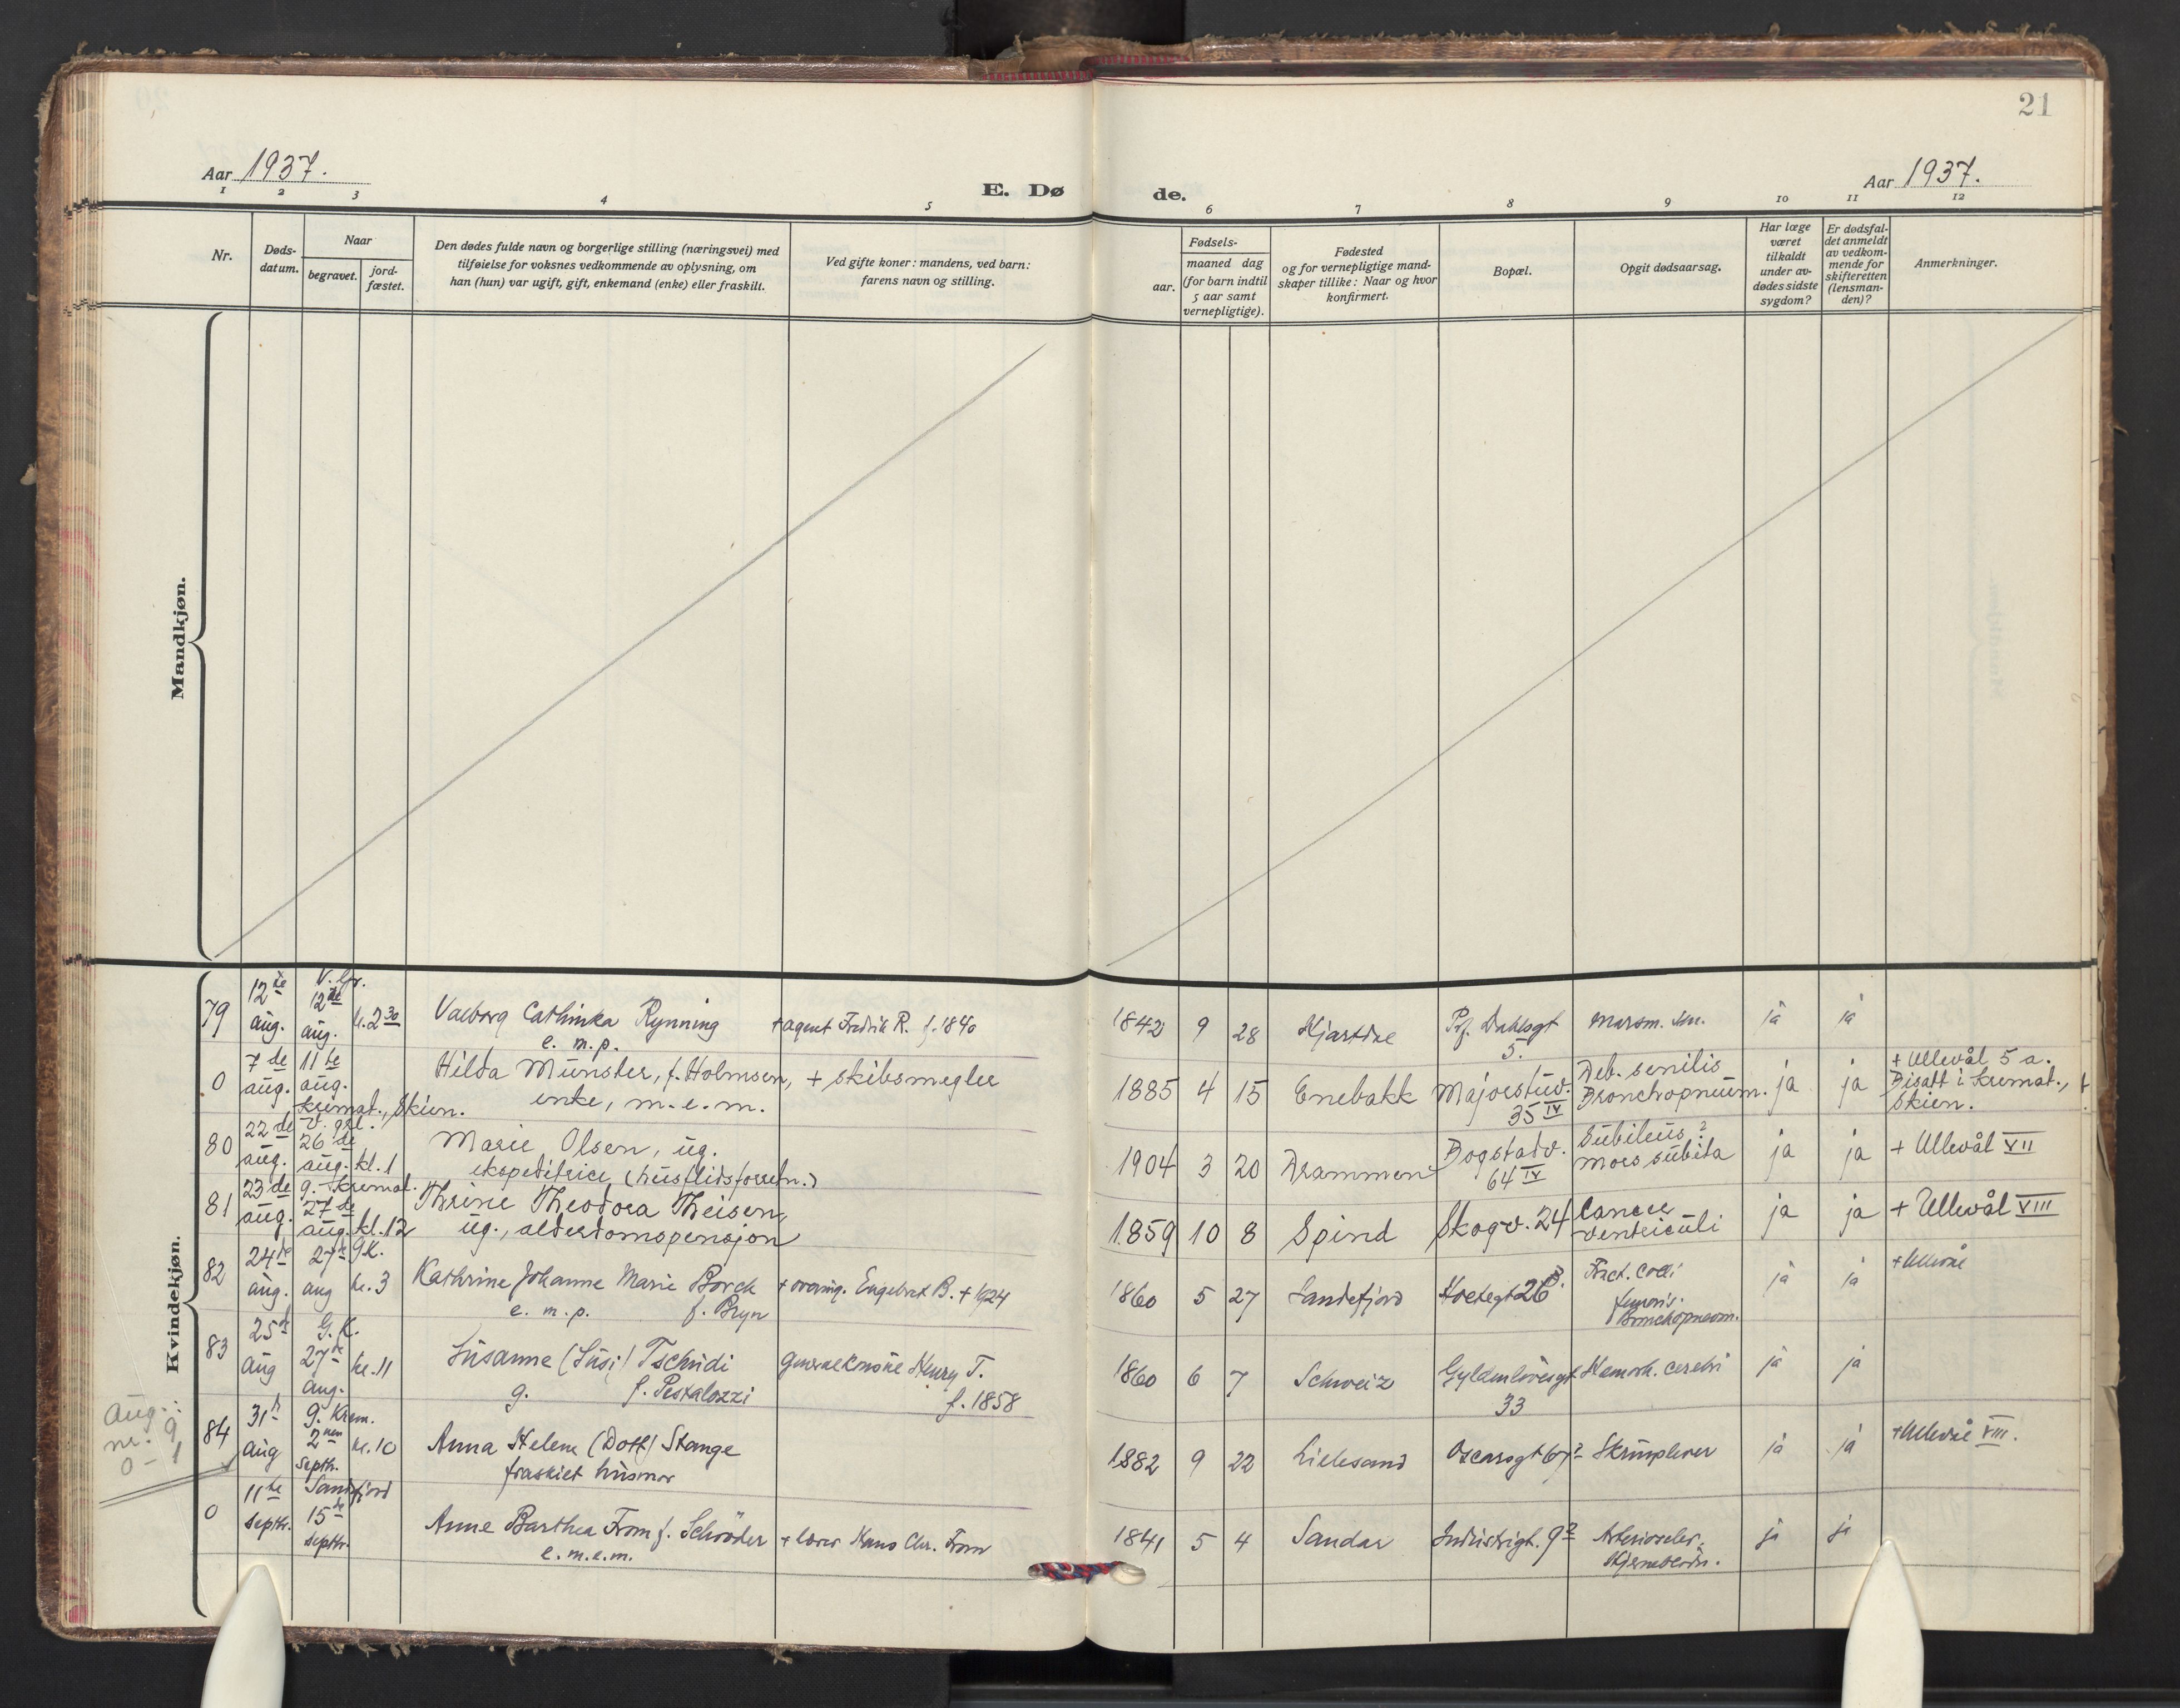 21
Aar 1937.
E. Dø
de.
Aar 1937.
1 2 3 4 5 6 7 8 9 10 11 12
Nr.
Døds-
datum.
Naar
begravet.
jord-
fæstet.
Den dødes fulde navn og borgerlige stilling (næringsvei) med
tilføielse for voksnes vedkommende av oplysning, om
han (hun) var ugift, gift, enkemand (enke) eller fraskilt.
Ved gifte koner: mandens, ved barn:
farens navn og stilling.
Fødsels-
aar.
maaned dag
(for barn indtil
5 aar samt
vernepligtige).
Fødested
og for vernepligtige mand-
skaper tillike: Naar og hvor
konfirmert.
Bopæl.
Opgit dødsaarsag.
Har læge
været
tilkaldt
under av-
dødes sidste
sygdom?
Er dødsfal-
det anmeldt
av vedkom-
mende for
skifteretten
(lensman-
den)?
Anmerkninger.
Mandkjøn.
Kvindekjøn.
79 12te aug. V. Gr. 12te aug. kl. 2 30 Valborg Cathinka Rynning + agent Fredrik R. f. 1840 1842 9 28 Hjartdal Prf. Dahlsgt Marsm. sen. ja ja
e. m. p. 5.
0 7de aug. 11te aug. Hilda Münster, f. Holmsen, + skibsmegler 1885 4 15 Enebakk Majorstuv. Deb. senilis ja ja + Ullevål 5 a.
enke, m. e. m. 35 IV Bronchopneum. Bisatt i kremat.,
kremat., Skien. Skien.
80 22de aug. V. grl. 26de aug. kl. 1 Marie Olsen, ug. 1904 3 20 Drammen Bogstadv. Subileus? ja ja + Ullevål VII
ekspeditrice (husflidsforretn.) 64 IV mors subita
81 23de aug. g. kremat. 27de aug. kl. 12 Thrine Theodora Theisen, 1859 10 8 Spind Skogv. 24 Cancer ja ja + Ullevål VIII
ug., alderdomspensjon ventriculi
82 24de aug. 27de G K. aug kl. 3 Kathrine Johanne Marie Borck + Engebret B. + 1924 1860 5 27 Sandefjord Holtegt 26 Fract. colli ja ja + Ullevål
e. m. p. f. Bryn femoris.
Bronchopneum.
83 25de aug G. K. 27de aug. kl. 11 Susanne (Susi) Tschudi Generalkonsul Henry T. 1860 6 7 Schweiz Gyldenløvesgt Hæmorh. cerebri ja ja
g. f. Pestalozzi f. 1858 33
84 31te aug g. Krem. 2nen septbr. kl. 10 Anna Helene (Dott) Stange 1882 9 22 Lillesand Oscarsgt 67 2 Skrumplever ja ja + Ullevål VIII.
fraskilt husmor
Aug.:
nr. 9,
0 – 1
0 11te septbr. Sandefjord 15de septbr. Anne Barthea From f. Schrøder + lærer Hans Chr. From 1841 5 4 Sandar Industrigt. 9 2 Arterioscler. ja ja
e. m. e. m. Hjerneblødn.